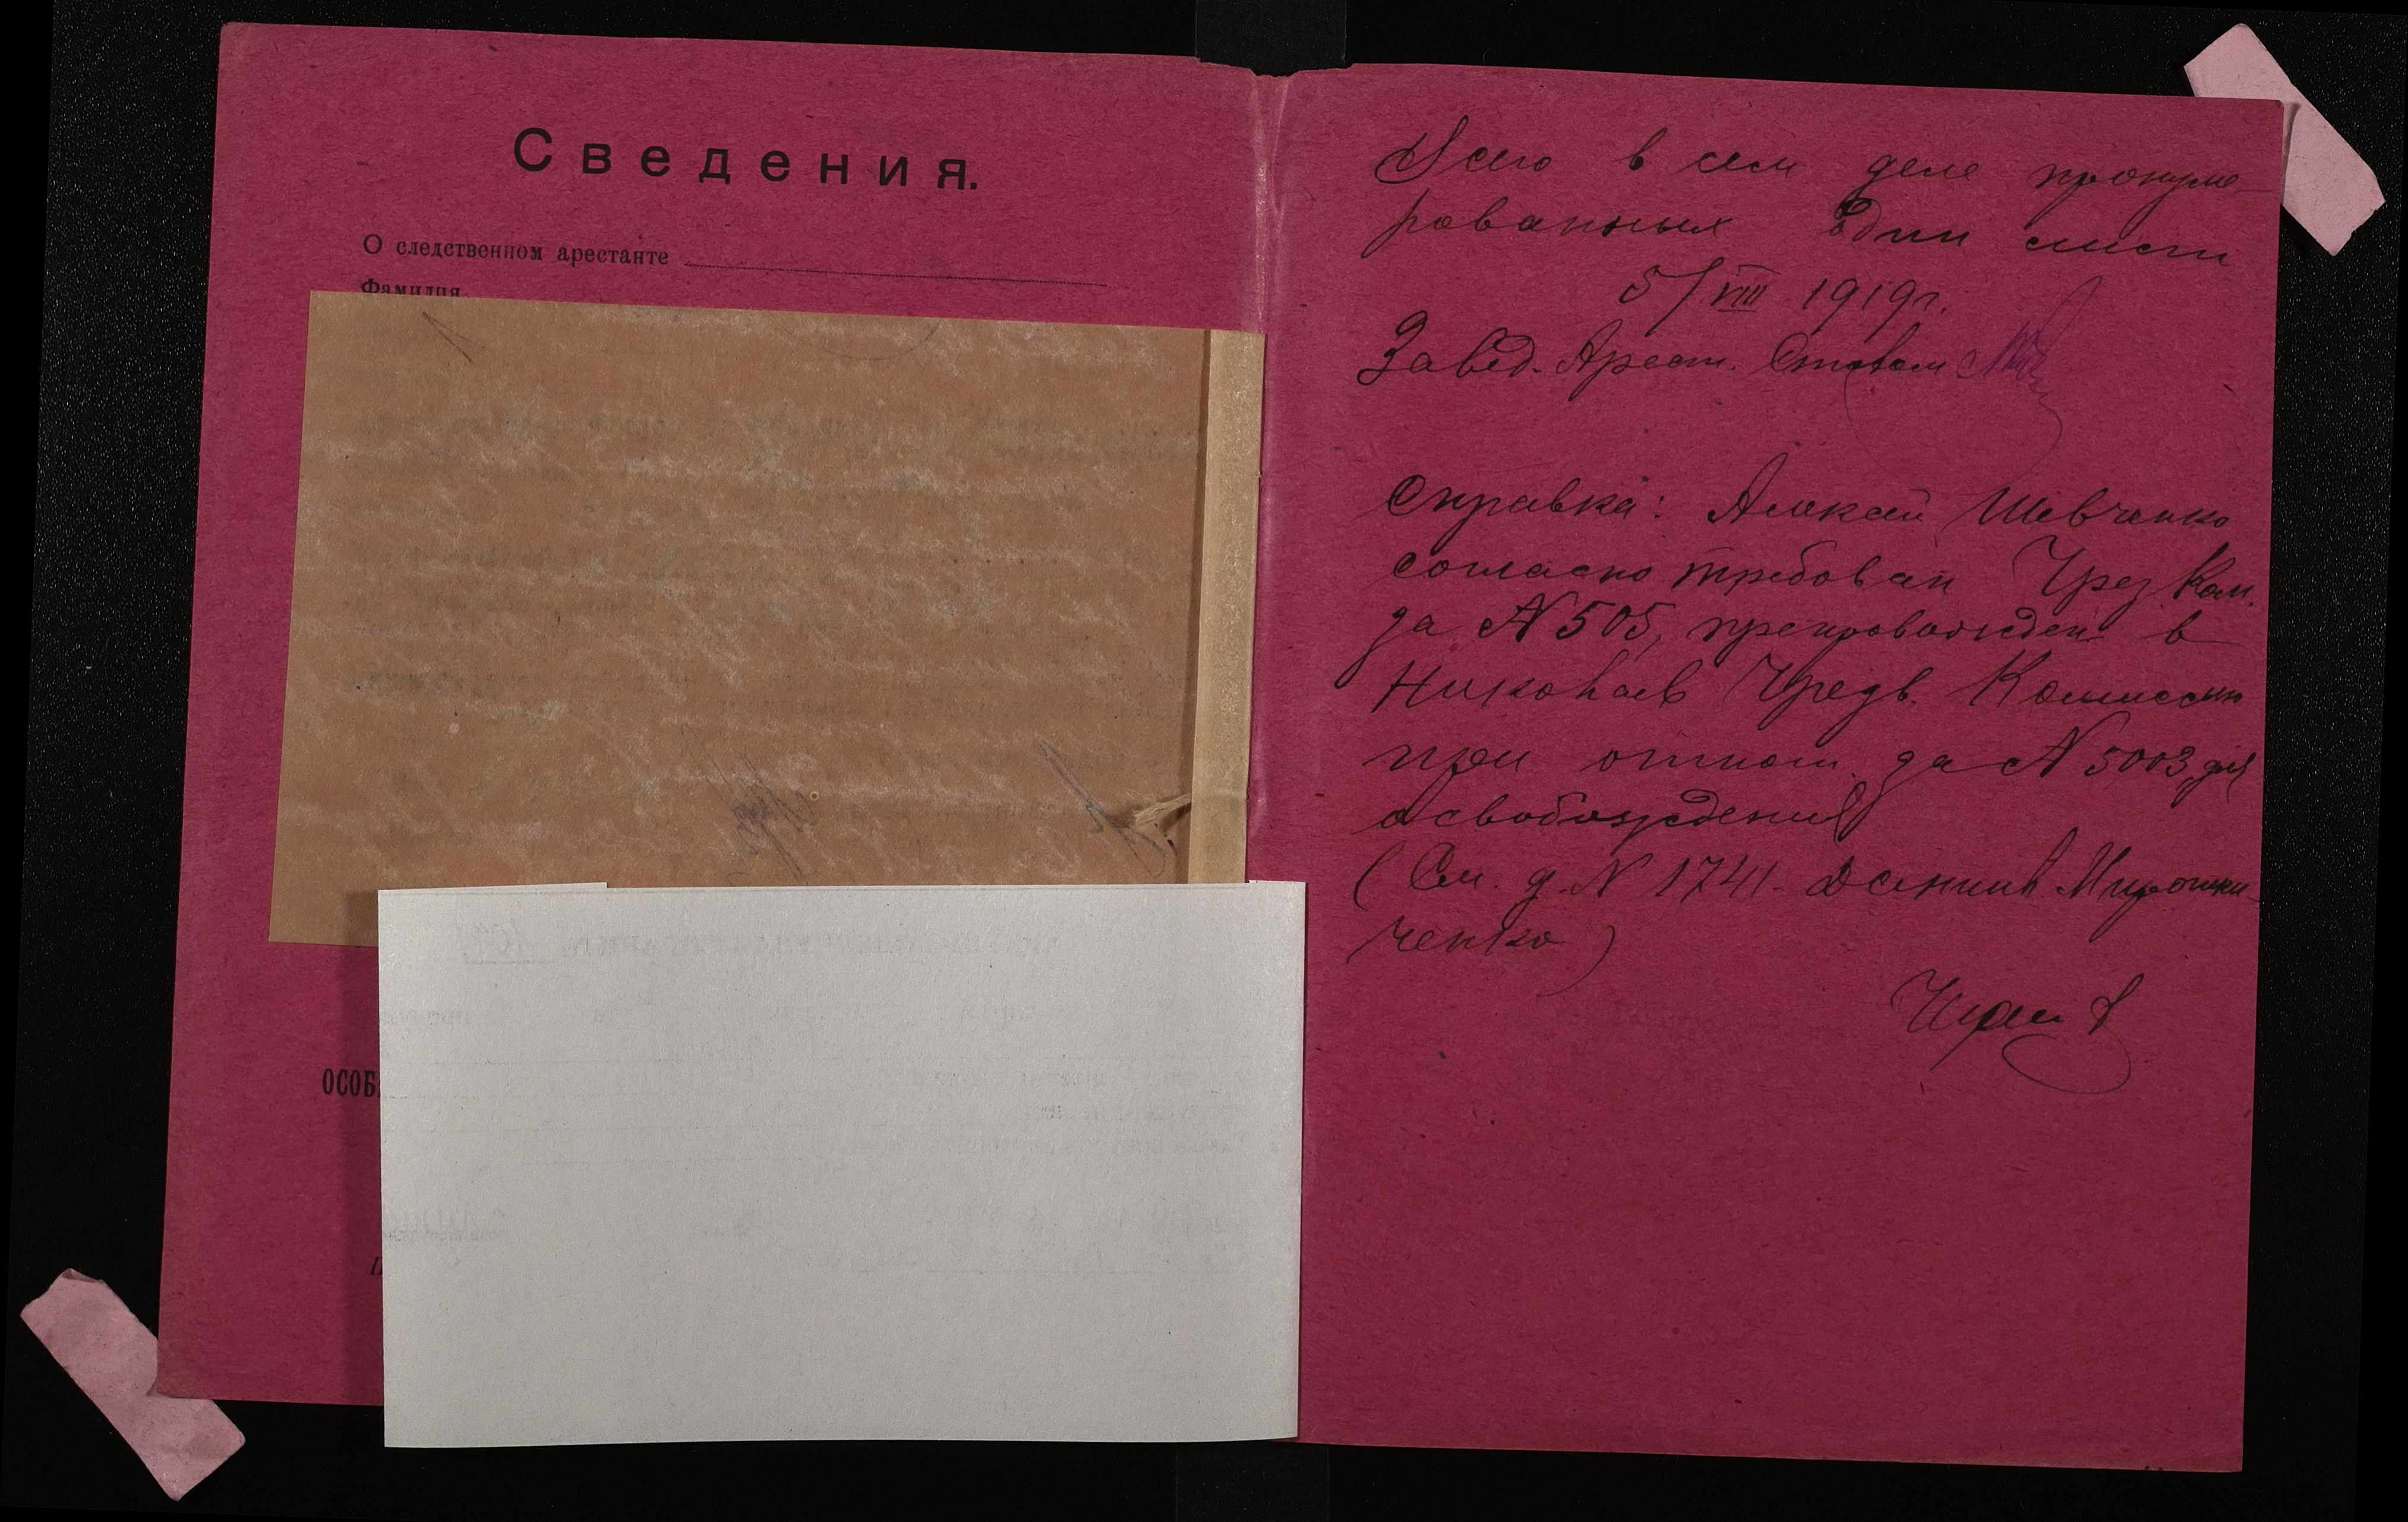 Сведения.
О следственном арестанте
Фамилия
ОСОБ
Всего в сем деле пронуме-
рованных один лист
5/VIII 1919г.
Завед. Арест. Столом
Справка: Алексей Шевченко
согласно требован Чрез. Ком.
за № 505, препровожден в
Николаев Чрезв. Комиссию
при отнош. за № 5003 для
освобождения
(См. д. № 1741 Даниила Мирошни-
ченко)